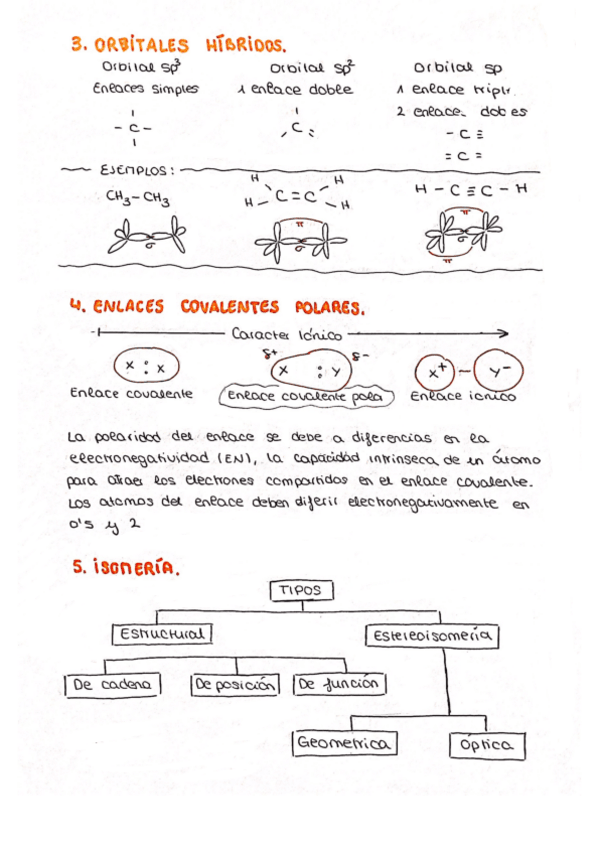 3. ORBITALES HÍBRIDOS.
Orbital sp³ Orbital sp² Orbital sp
Enlaces simples 1 enlace doble 1 enlace triple
2 enlace. dobes
- C - , C : - C ≡
= C =
EJEMPLOS:
CH₃-CH₃ H H H-C=C-H H-C≡C-H
π π
σ σ σ
π
4. ENLACES COVALENTES POLARES.
Caracter Iónico
δ+ δ-
x : x x : y x⁺ - y⁻
Enlace covalente Enlace covalente pola Enlace iónico
La polaridad del enlace se debe a diferencias en la
electronegatividad (EN), la capacidad intrínseca de un átomo
para atraer los electrones compartidos en el enlace covalente.
Los atomos del enlace deben diferir electronegativamente en
0's y 2
5. ISOMERÍA.
TIPOS
Estructural Estereoisomería
De cadena De posición De función
Geometrica Óptica